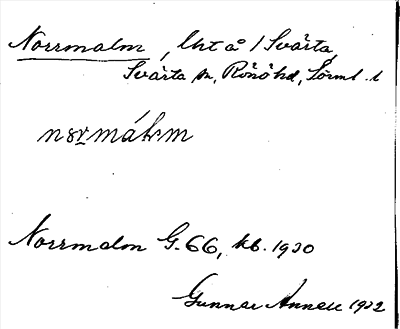 Norrmalm, lht å /Svärta,
Svärta sn, Rönö hd, Sörml. l
Norrmalm G. 66, kb. 1930
Gunnar Annell 1932